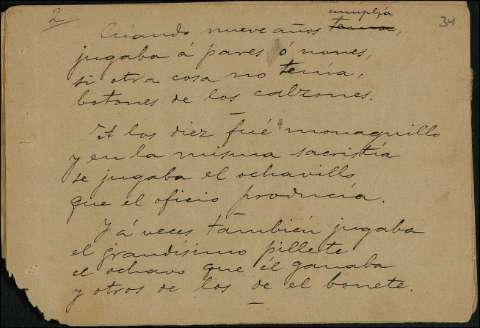 2
34
Cuando nueve años cumplía tenía,
jugaba á pares ó nones,
si otra cosa no tenía,
botones de los calzones.
A los diez fué monaguillo
y en la misma sacristía
se jugaba el ochavillo
que el oficio producía.
Y á veces también jugaba
el grandísimo pillete
el ochavo que él ganaba
y otros de los de el bonete.